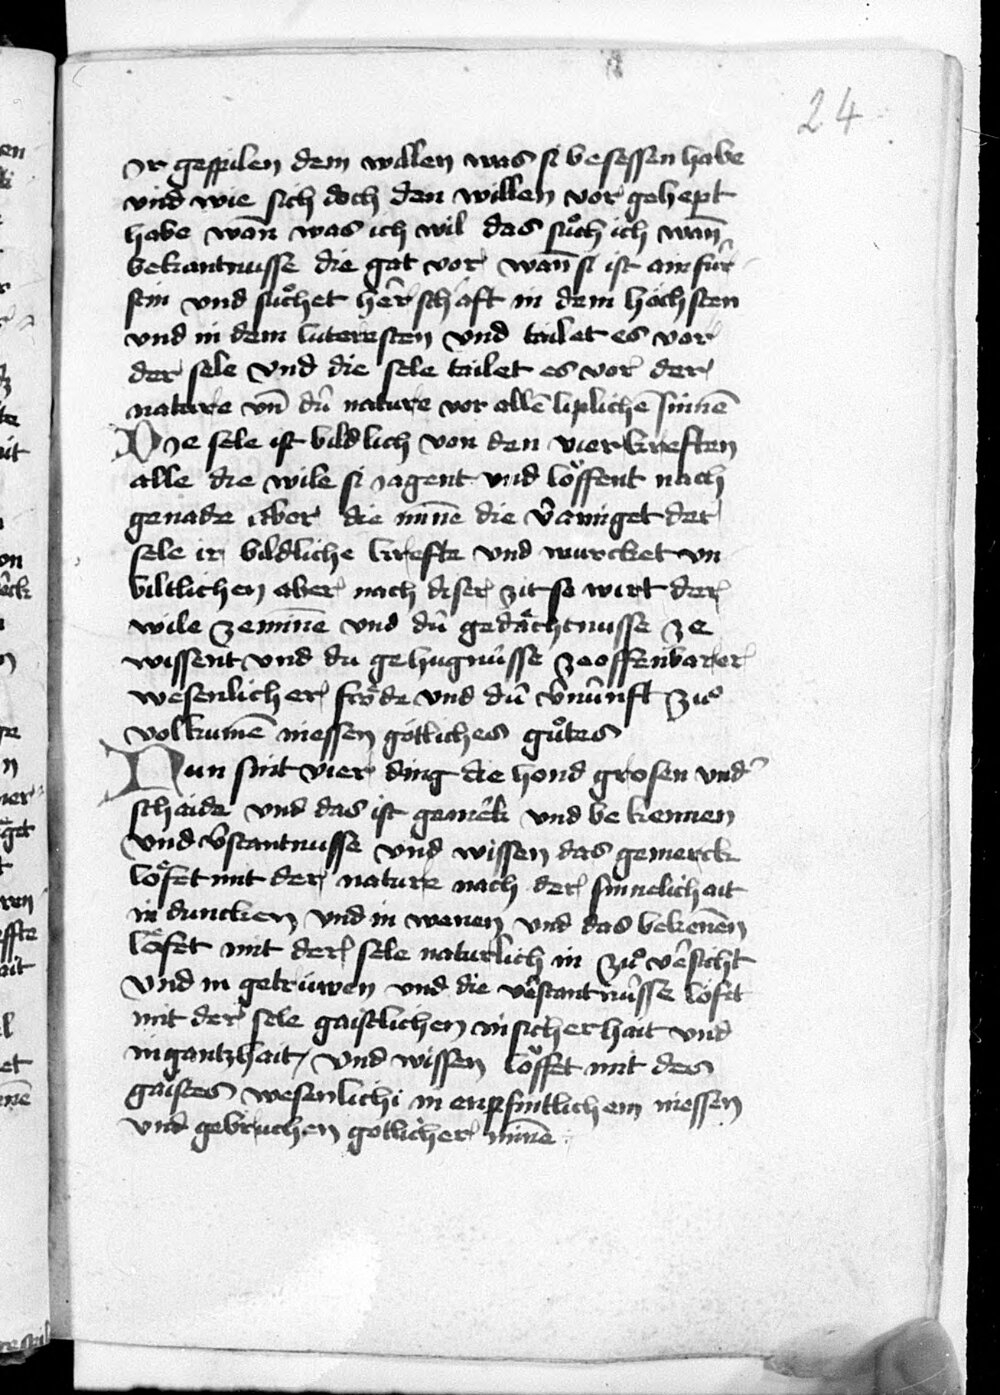 24
ir gespilen dem willen was si besessen habe
vnd wie sich doch den willen vor gehept
habe wan̄ was ich wil das suͦch ich wan̄
bekantnusse die gat vor wan̄ si ist ain fúr
stin vnd suͦchet her̂schaft in dem höchsten
vnd in dem lutersten vnd tailet es vor
der sele vnd die sele tailet es vor der
nature vn̄ dû nature vor allē liplichē sinnē
Die sele ist bildlich von den vier kreften
alle die wile si iagent vnd loͤffent nach
genade aber die minē die v̂ainiget der
sele ir bildliche krefte vnd wurcket vn
biltlichen aber nach diser zit so wirt der
wile ze minē vnd dû gedaͤchtnusse ze
wissent vnd du gehugnûsse ze offenbarer
wesenlicher froͤde vnd dû v̂nûnft zuͦ
volkumē niessen götliches guͦtes
Nun sint vier ding die hond grosen vnd̂
schaide vnd das ist gemer̂k vnd bekennen
vnd v̂stantnusse vnd wissen das gemerck
loͤfet mit der nature nach der sinnelichait
in duncken vnd in wenen vnd das bekenēn
loͤfet mit der sele naturlich in zuͦ vêsicht
vnd in getrúwen vnd die vêstantnûsse löfet
mit der sele gaistlichen in sicherhait vnd
in gantzhait / vnd wissen loͤffet mit des
gaistes wesenlichi in enpfintlichem niessen
vnd gebruchen gotlicher minē